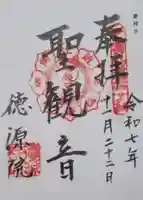 奉拝
令和七年
十一月二十二日
聖観音
徳源院